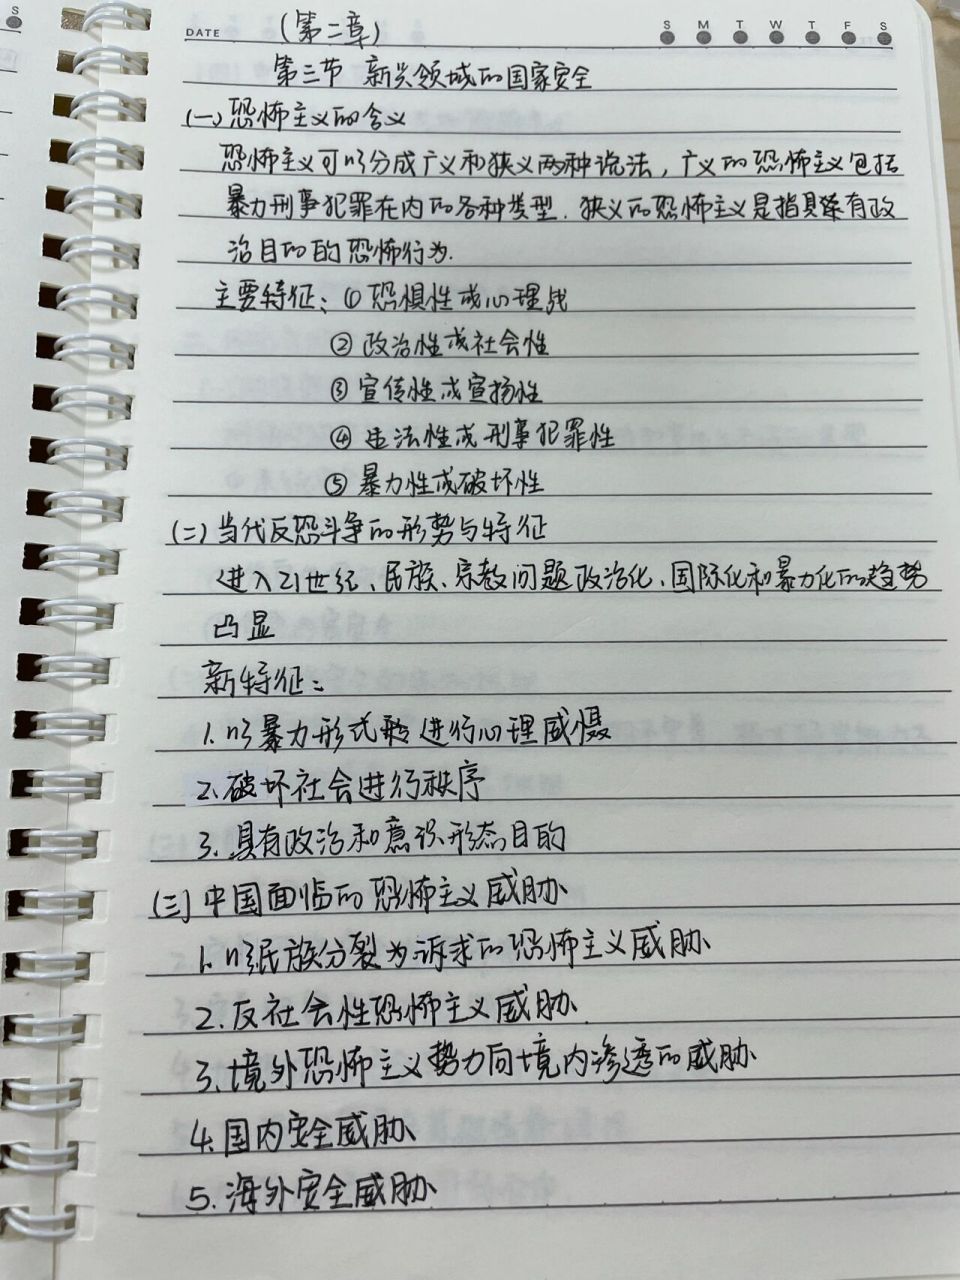 S
DATE
(第二章)
S M T W T F S
第三节 新兴领域的国家安全
(一)恐怖主义的含义
恐怖主义可以分成广义和狭义两种说法，广义的恐怖主义包括
暴力刑事犯罪在内的各种类型.狭义的恐怖主义是指具有政
治目的的恐怖行为.
主要特征：①恐惧性或心理战
②政治性或社会性
③宣传性或宣扬性
④违法性或刑事犯罪性
⑤暴力性或破坏性
(二)当代反恐斗争的形势与特征
进入21世纪、民族、宗教问题政治化、国际化和暴力化的趋势
凸显
新特征：
1.以暴力形式进行心理威慑
2.破坏社会进行秩序
3.具有政治和意识形态目的
(三)中国面临的恐怖主义威胁
1.以民族分裂为诉求的恐怖主义威胁
2.反社会性恐怖主义威胁
3.境外恐怖主义势力向境内渗透的威胁
4.国内安全威胁
5.海外安全威胁